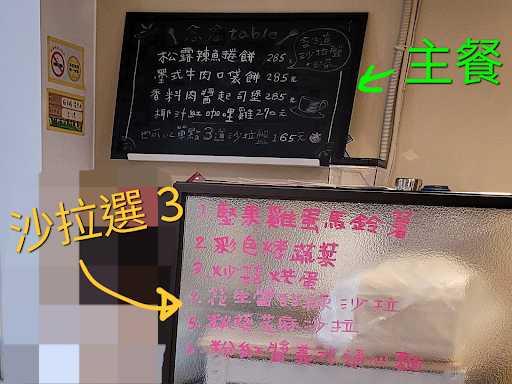 念念table
松露辣魚捲餅 285元
墨式牛肉口袋餅 285元
香料肉醬起司堡 285元
椰汁紅咖哩雞 270元
也可以單點3道沙拉盤 165元
含3道
沙拉盤
主餐
沙拉選 3
1. 堅果雞蛋馬鈴薯
2. 彩色烤蔬菜
3. 炒菇烘蛋
4. 花生醬 沙拉
5. 沙拉
6. 粉紅醬 通心麵